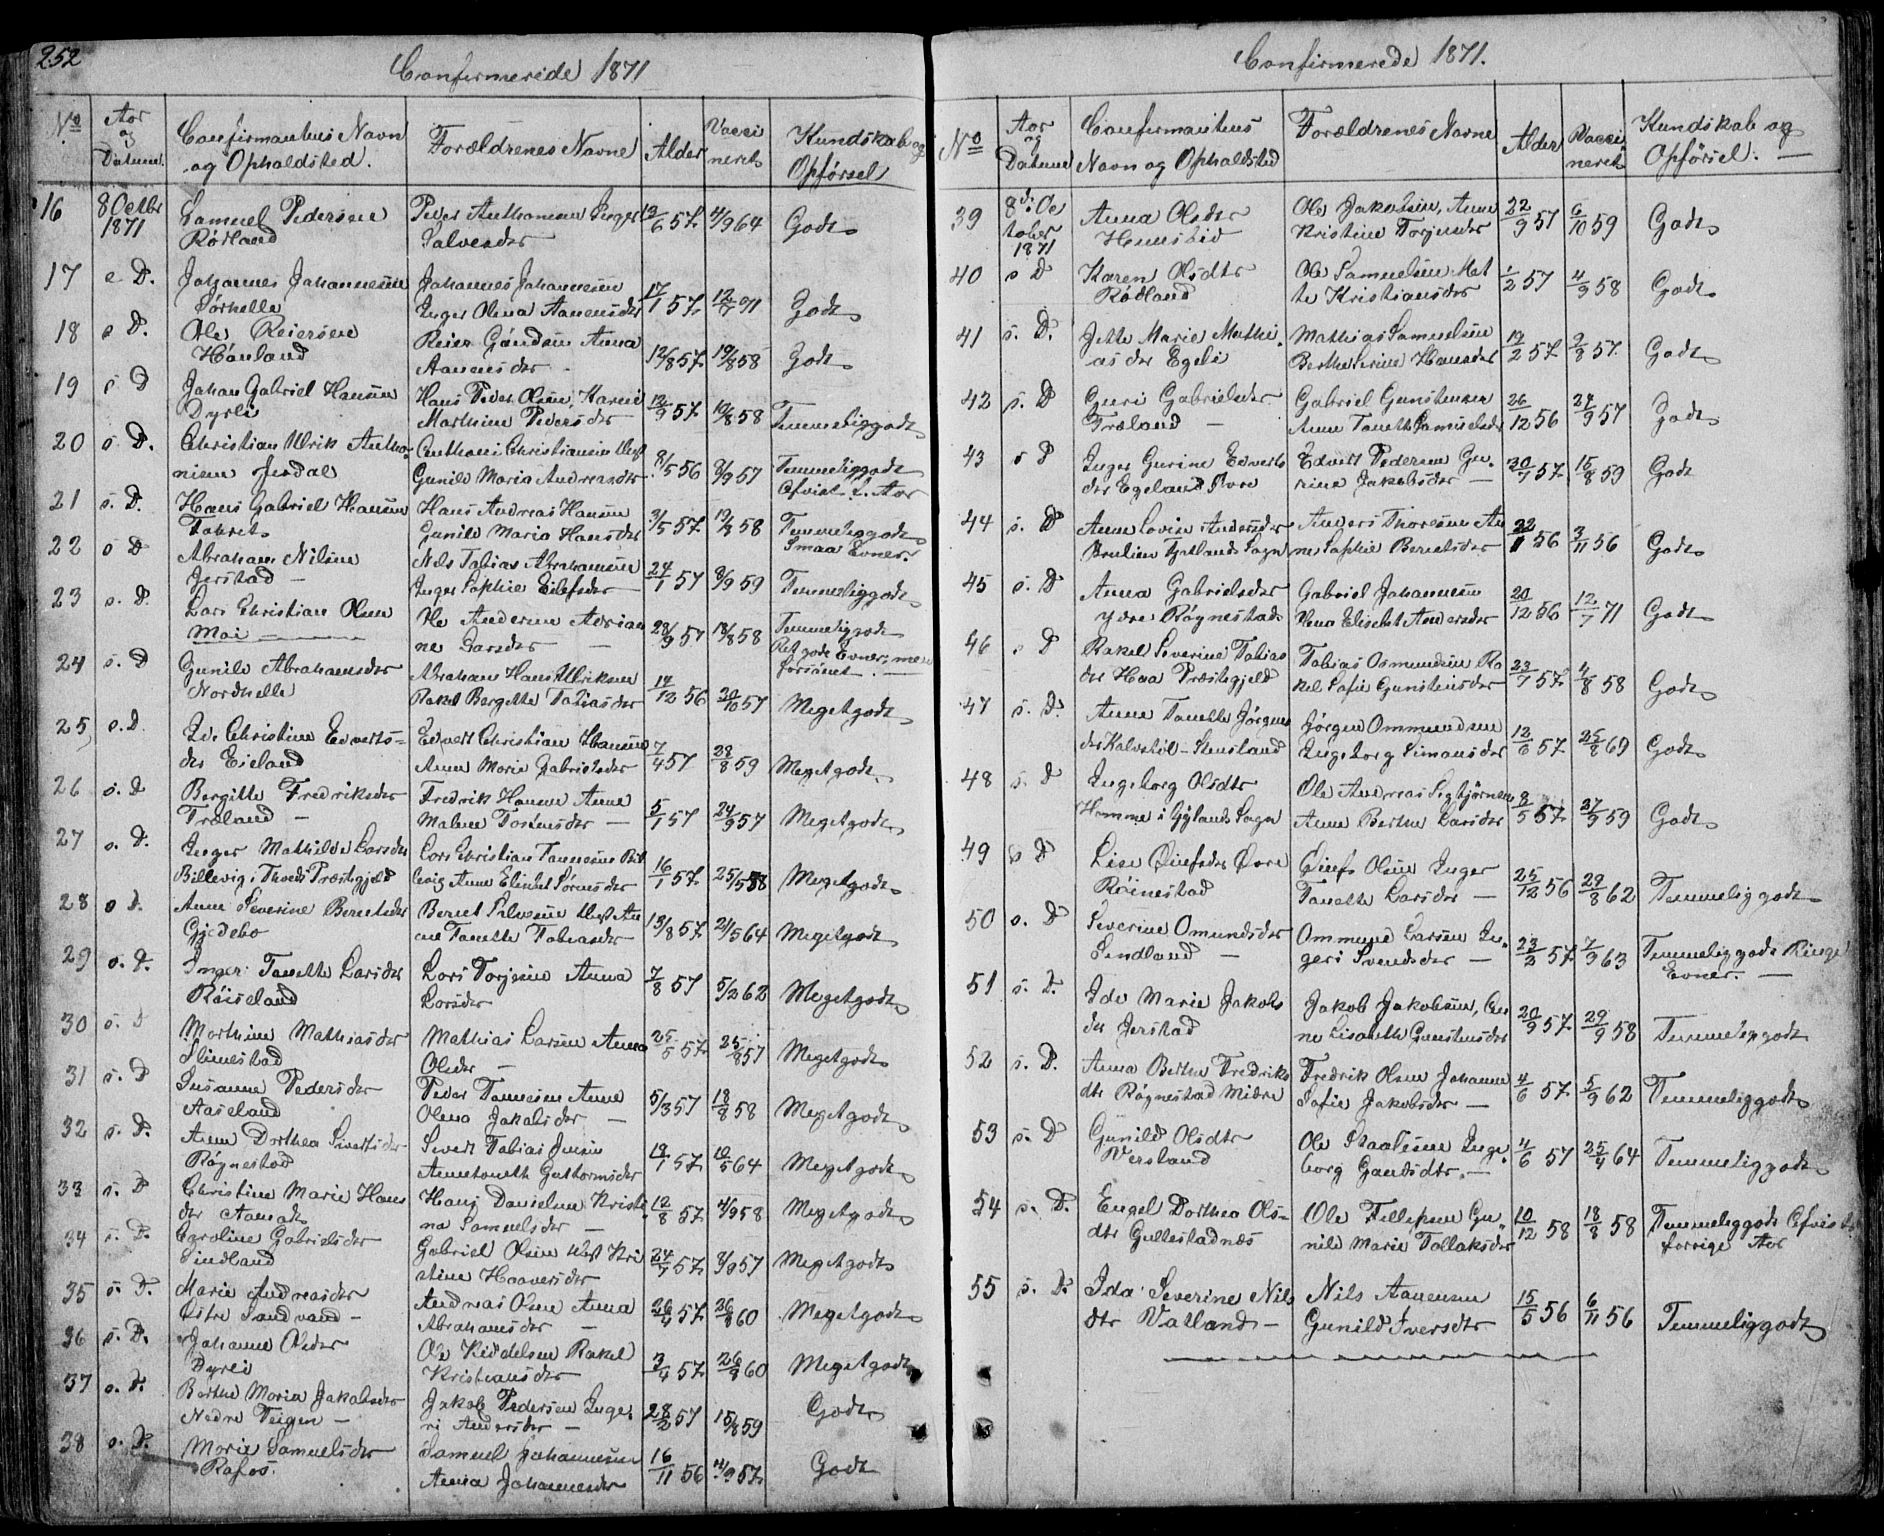 252
Confirmerede 1871
No
Aar og Datum.
Confirmantens Navn og Opholdsted.
Forældrenes Navne
Alder
Vacci neret
Kundskab og Opførsel
16 8 Octbr 1871 Samuel Pedersen Rødland Peder Anthonisen Inger Salvesdr 12/6 57 4/9 64 Godt
17 s D. Johannes Johannesen Sørhelle Johannes Johannesen Inger Olena Aanensdr 17/1 57 12/7 71 Godt
18 s D. Ole Reiersen Haanland Reier Gundsen Anna Aanensdr 12/8 57 19/8 58 Godt
19 s D Johan Gabriel Hansen Dyrli Hans Peder Olsen, Karen Marthine Pedersdr 12/9 57 19/8 58 Temmeliggodt
20 s D. Christian Ulrik Anthonisen Josdal Anthoni Christiansen Gunild Maria Andreasdr 8/5 56 8/9 57 Temmeliggodt Afvist f. Aar
21 s. D. Hans Gabriel Hansen Hans Andreas Hansen Gunild Maria Hansdr 3/5 57 19/8 58 Temmeliggodt Smaa Evner.
22 s D Abraham Nilsen Jerstad – Nils Tobias Abrahamsen Inger Sophie Eilefsdr 24/1 57 8/9 59 Temmeliggodt
23 s. D. Lars Christian Olsen Moi – Ole Andersen Adrian ne Larsdr – 28/9 57 18/8 58 Temmeliggodt Ret gode Evner, men forsømt. –
24 s. D Gunild Abrahamsdr Nordhelle Abraham Hans Ulriksen Rakel Bergitte Tobiasdr 14/12 56 20/10 57 Megetgodt
25 s. D. Ide Christine Edverts- dr Eieland Edvert Christian Hansen Anne Marie Gabrielsdr 7/4 57 28/8 59 Megetgodt
26 s. D Bergitte Fredriksdr Træland – Fredrik Hansen Anne Malene Torensdr – 5/1 57 24/9 57 Megetgodt
27 s. D. Inger Mathilde Larsdr Billevig i Præstegjeld Lars Christian Tønnesen Anne Elisabet Sørensdr 16/1 57 25/5 58 Megetgodt
28 s D. Anne Severine Berntsdr Gjedebo Bernt Salvesen An ne Tanethe Tobiasdr 13/8 57 21/5 64 Megetgodt
29 s. D. Inger Tanethe Larsdr Røiseland Lars Torjesen Anna Larsdr 7/8 57 5/2 62 Megetgodt
30 s. D Marthine Mathiasdr Slimestad Mathias Larsen Anna Olsdr – 25/5 57 25/8 57 Megetgodt
31 s. D Susanne Pedersdr Aaseland Peder Tønnesen Anne Olena Jakobsdr – 5/3 57 18/8 58 Megetgodt
32 s. D. Anne Dorthea Sivertsdr Røgnestad Sivert Tobias Jensen Annetoneth Guttormsdr 19/1 57 10/5 64 Megetgodt
33 s. D Christine Marie Hans dr Aamodt Hans Danielsen Kristi na Samuelsdr – 12/8 57 4/9 58 Megetgodt
34 s. D. Caroline Gabrielsdr Sindland Gabriel Olsen Kri stine Haaversdr 24/7 57 3/9 57 Megetgodt
35 s. D. Marie Andreasdr Østre Sandvand – Andreas Olsen Anna Abrahamsdr – 26/4 57 26/8 60 Megetgodt
36 s. D. Johanne Olsdr Dyrli Ole Kiddelsen Rakel Kristiansdr 3/4 57 26/8 60 Megetgodt
37 s. D. Berthe Maria Jakobsdr Nedre Teigen – Jakob Pedersen Inge ri Andersdr – 28/2 57 15/8 59 Godt
38 s. D. Marie Samuelsdr Rafos. Samuel Johannesen Anna Johannesdr 16/11 56 4/9 57 Godt
Confirmerede 1871.
No
Aar og Datum
Confirmantens Navn og Opholdsted
Forældrenes Navne
Alder
Vacci neret
Kundskab og Opførsel. –
39 8de Oc tober 1871 Anna Olsdtr Hemestad Ole Jakobsen, Anne Kristine Torjusdtr 22/9 57 6/10 59 Godt
40 s D Karen Olsdtr Rødland Ole Samuelsen Met te Kristiansdtr 1/2 57 4/9 58 Godt
41 s. D. Jette Marie Mathi as dr Egeli Mathias Samuelsen Berthe Serine Hansdr 19/2 57 9/8 57. Godt
42 s. D Guri Gabrielsdr Træland – Gabriel Gunstensen Anne Taneth Samuelsdr 26/12 56 24/9 57 Godt
43 s D Inger Gurine Edverts dr Egeland Øvre Edvert Pedersen Gu- rine Jakobsdr – 20/7 57 15/8 59 Godt
44 s. D Anne Lovise Andersdr Tjotlands Sogn Anders Thoresen An ne Sophie Berntsdr 22/1 56 3/11 56 Godt
45 s. D Anna Gabrielsdr ydre Røgnestad Gabriel Johannesen Elisabet Andersdr 20/12 56 12/7 71 Godt
46 s D Rakel Severine Tobias dr Haa Præstegjeld Tobias Osmundsen Ra kel Sofie Gunstensdr 23/7 57 4/8 58 Godt
47 s. D. Anne Tanette Jørgens dr Kalvstøl – Stensland Jørgen Ommundsen Ingeborg Simonsdr 12/6 57 25/8 69 Godt
48 s. D Ingeborg Olsdtr Homme i Gylands Sogn Ole Andreas Segbjørnsen Anne Berthe Larsdr 8/5 57 27/9 59 Godt
49 s D Lise Eliefsdr Øvre Røinestad Eliefs Olsen Inger Taneth Larsdr – 25/12 56 29/8 62 Temmeliggodt
50 s. D Severine Omundsdr Sindland – Ommund Larsen In- geri Svendsdr – 23/2 57 7/9 63 Temmeliggodt Ringe Evner. –
51 s. D. Ide Marie Jakobs dr Jerstad Jakob Jakobsen, An ne Lisabeth Gunstensdr 20/9 57 29/9 58 Temmeliggodt
52 s. D. Anna Berthe Fredriks dtr Røgnestad Midre Fredrik Olsen Johanne Sofie Jakobsdr – 4/6 57 5/9 62 Temmeliggodt
53 s. D Gunild Olsdtr Versland Ole Staalesen Inge borg Gundsdtr. – 4/6 57 25/4 64 Temmeliggodt
54 s. D. Engel Dorthea Ols- dtr Gullestadnæs Ole Fillipsen Gu- nild Marie Tollaksdr 10/12 58 18/8 58 Temmeliggodt Afvist forrige Aar
55 s. D. Ida Severine Nils dtr Vatland – Nils Aanensen Gunild Iversdtr 15/5 56 6/11 56 Temmeliggodt